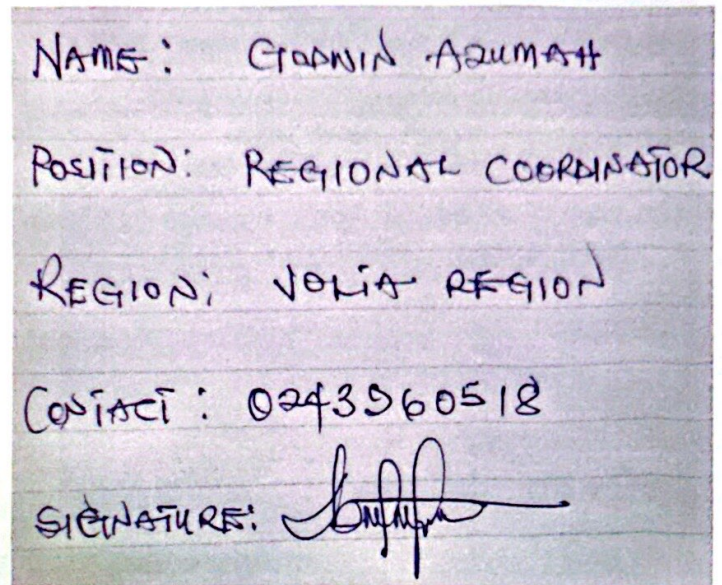 NAME: GODWIN AZUMAH
POSITION: REGIONAL COORDINATOR
REGION: VOLTA REGION
CONTACT: 0243960518
SIGNATURE: